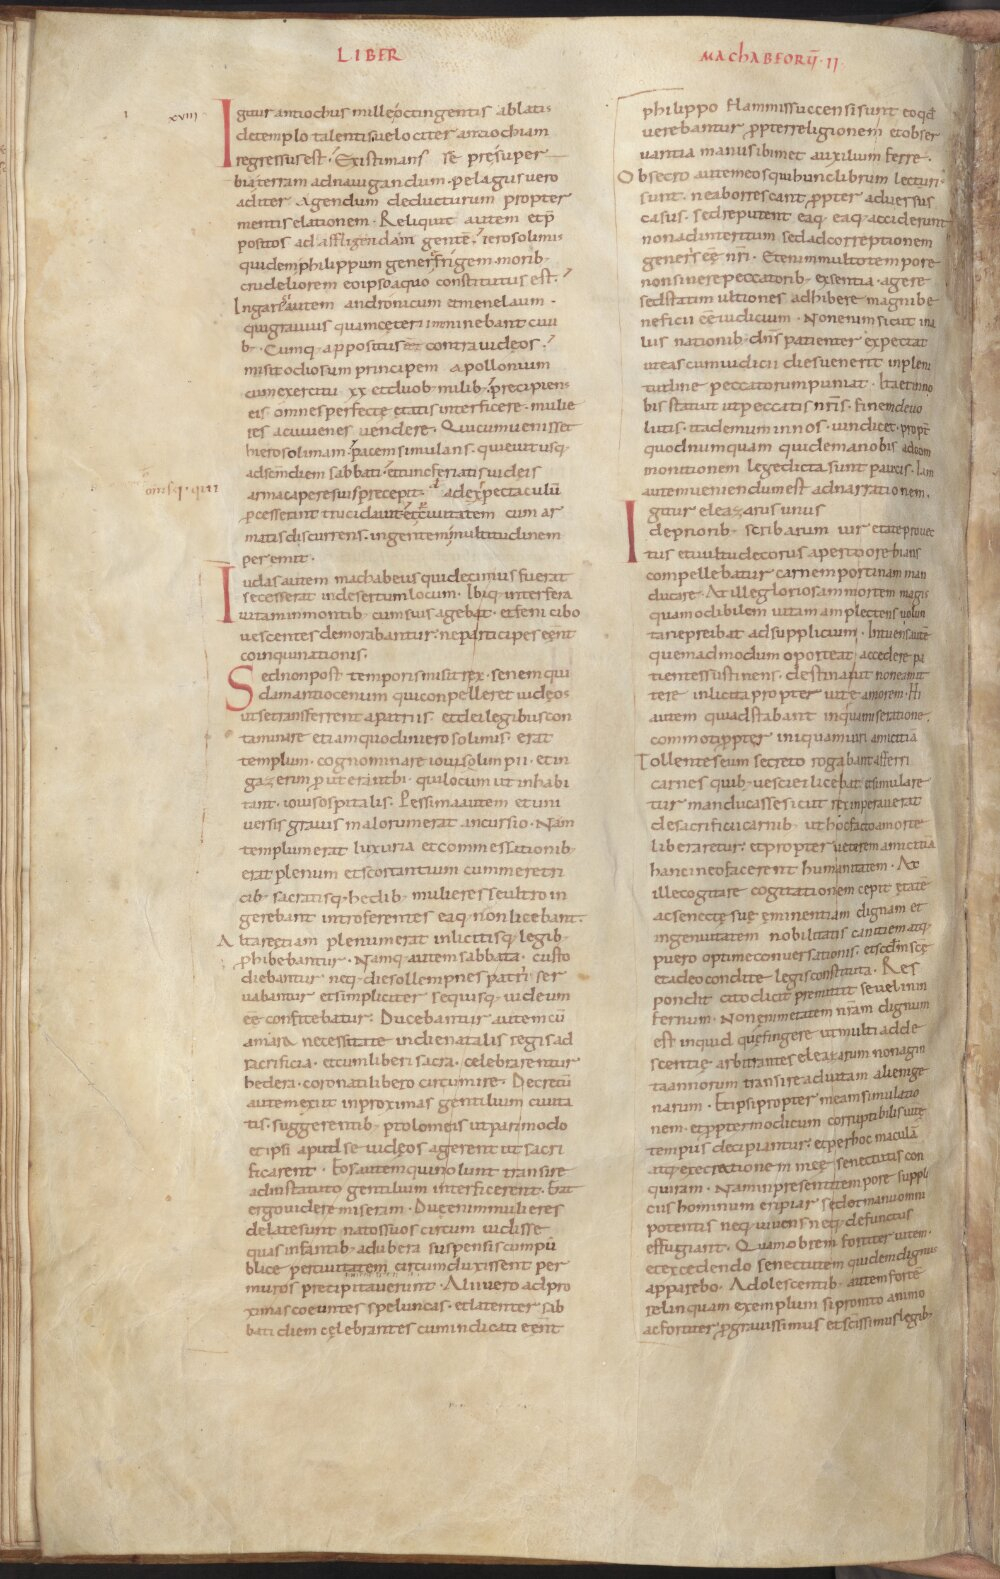 LIBER
MAChABEORU̅ · II
XVIII
Igitur antiochus mille octingentis ablatis
detemplo talentis uelociter antiochiam
regressus est. Existimans se pre superbia
biaterram adnauigandum. pelagus uero
aditer Agendum deducturum propter
mentis elationem. Reliquit autem et p̅
positos ad affligendam gente̅. ierosolimis
quidem philippum genere frigem. morib·
crudeliorem eo ipso a quo constitutus est.
Ingarę autem andronicum et menelaum.
qui grauius quam cęteri imminebant ciui
b· Cumq· appositus esset contra iudęos.
misit odiosum principem Apollonium
cum exercitu xx et duob· milib· precipiens
eis omnes perfectę ętatis interficere. mulie
res ac iuuenes uendere. Qui cum uenisset
hierosolimam. pacem simulans. quieuit usq·
ad sc̅m diem sabbati. et tunc feriatis iudeis
arma capere suis precepit. ad expectaculu̅
pcesserunt trucidauit. et ciuitatem cum ar
matis discurrens. ingentem multitudinem
peremit.
Iudas autem machabeus qui decimus fuerat
secesserat in desertum locum. Ibiq· inter fera
uitam in montib· cum suis agebat. et feni cibo
uescentes demorabantur. ne participes eent
coinquinationis.
Sed non post temporis misit rex. senem qui
dam antiocenum qui conpelleret iudęos
ut se transferrent a patriis. et dei legibus con
taminare etiam quod in ierosolimis. erat
templum. cognominare iouis olimpii. et in
gazerim put erant hi. qui locum ut inhabi
tant. iouis ospitalis. Pessima autem et uni
uersis grauis malorum erat incussio. Nam
templum erat luxuria et commessationib·
erat plenum et scortantium cum meretri
cib· sacratisq· hedib· mulieres se ultro in
gerebant introferentes ea q· non licebant.
Altare etiam plenum erat inlicitis q· legib·
phibebantur. Namq· autem sabbata. custo
diebantur neq· dies ollempnes patrii ser
uabantur et simpliciter se quisq· iudeum
e̅e confitebatur. Ducebantur autem cu̅
amara necessitate in die natalis regis ad
sacrificia. et cum liberi sacra. celebrarentur
hedera. coronati libero circumire. Decretu̅
autem exiit in proximas gentilium ciuita
tis. suggerentib· ptolomeis ut pari modo
et ipsi apud se iudęos agerent ut sacri
ficarent. Eos autem qui nolunt transire
ad instatuto gentilium interficerent. Erat
ergo uidere miseriam. Duę enim mulieres
delate sunt natos suos circumcidisse
quas infantib· ad ubera suspensis cum pu̅
blice per ciuitatem circumduxissent per
muros precipitauerunt. Alii uero ad pro
ximas coeuntes speluncas. et latenter sab
bati diem cęlebrantes cum indicati eent
philippo flammis succensi sunt eo qd̅
uerebantur ppter religionem et obser
uantia manu sibimet auxilium ferre.
Obsecro autem eos qui hunc librum lecturi
sunt. ne aborrescant ppter aduersus
casus. sed reputent eaq· eaq· acciderunt
non ad interitum sed ad correptionem
generis e̅e nr̅i. Etenim multo tempore
non sinere peccatorib· ex sentia· agere
sed statim ultiones adhibere magni be
neficii e̅e iudicium. Non enim sicut in a
liis nationib· dn̅s patienter expectat
ut eas cum iudicii dies uenerit in pleni
tudine peccatorum puniat. Ita et in no
bis statuit ut peccatis nr̅is. finem deuo
lutis. ita demum in nos. uindicet. propt̅
quod numquam quidem a nobis ad com
monitionem legedicta sunt paucis. Iam
autem ueniendum est ad narrationem.
Igitur eleazarus unus
de priorib· scribarum uir etate prouec
tus et uultu decorus aperto ore hians
compellebatur carnem porcinam man
ducare. At ille gloriosam mortem magis
quam odibilem uitam amplectens uolun
tarie preibat ad supplicium. Intuens aute̅
quemadmodum oporteat accedere pa
tientes sustinens. destinauit non eamit
tere inlicita propter uite amorem. Hi
autem qui adstabant iniqua miseratione.
commoti ppter iniquam uiri amicitia̅
Tollentes eum secreto rogabant afferri
carnes quib· uescier licebat et simulare
tur manducasse sicut rex imperauerat
de sacrificii carnib· ut hoc facto a morte
liberaretur: et propter ueterem amicitia̅
hanc in eo facerent humanitatem. At
ille cogitare cogitationem cepit ętate̅
ac senectę suę ęminentiam dignam et
ingenuitatem nobilitatis canitiem atq·
puero optime conuersationis. et scd̅m scę
et a deo condite legis constituta. Res
pondit cito dicit premittit se uel in in
fernum. Non enim etatem nr̅am dignum
est inquid quę fingere ut multi adde
scentię arbitrantes eleazarum nonagin
ta annorum transire ad uitam alienige
narum. Et ipsi propter meam simulatio
nem. et ppter modicum corruptibilis uitę
tempus decipiantur: et per hoc macula̅
atq· execrationem meę senectutis con
quiram. Nam in presenti tempore suppli
ciis hominum eripiar sed et manu omni
potentis neq· uiuens neq· defunctus
effugiam. Quam obrem fortiter uitem·
et excedendo senectutem quidem dignus
apparebo. Adolescentib· autem forte̅
relinquam exemplum si promto animo
ac fortiter p grauissimus et sc̅issimus legib·